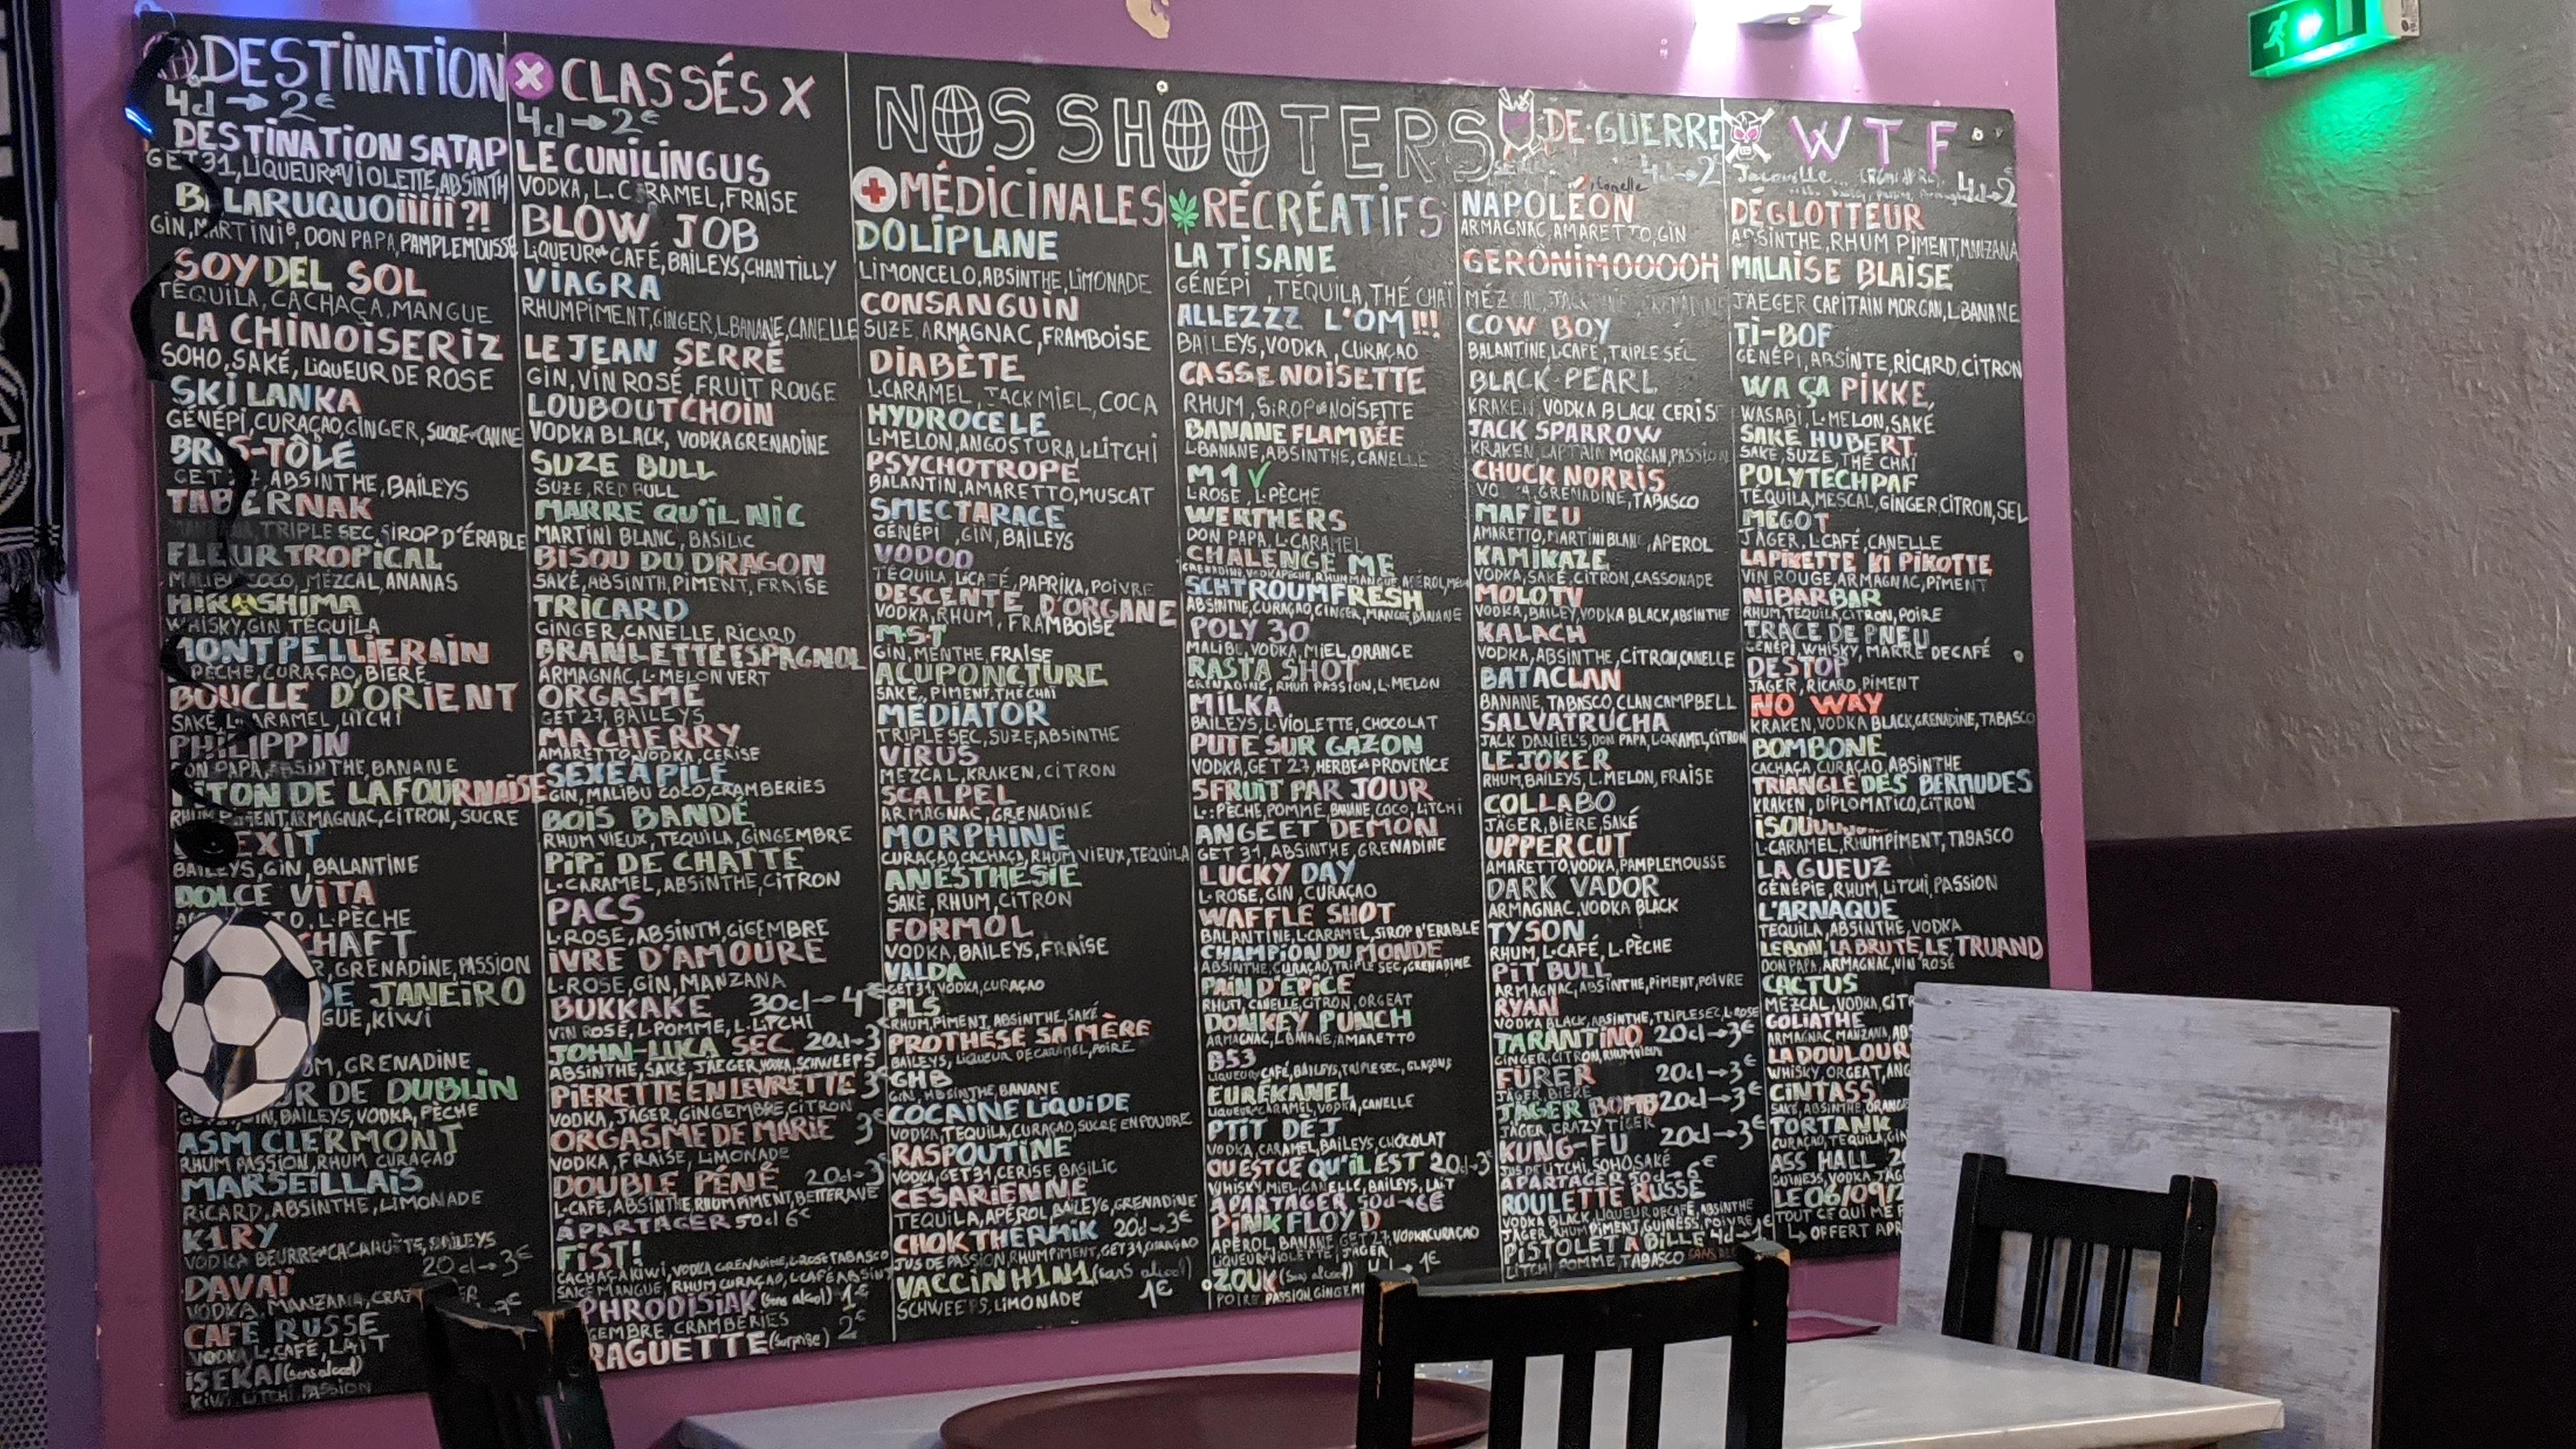 DESTINATION
4cl → 2€
DESTINATION SATAP
GET 31, LIQUEUR DE VIOLETTE, ABSINTH
LARUQUOIIIIII?!
GIN, MARTINI B, DON PAPA, PAMPLEMOUSSE
SOY DEL SOL
TEQUILA, CACHAÇA, MANGUE
LA CHINOISERIZ
SOHO, SAKÉ, LIQUEUR DE ROSE
SKI LANKA
GÉNÉPI, CURAÇAO, GINGER, SUCRE DE CANNE
BRIS-TÔLE
GET 27, ABSINTHE, BAILEYS
TABERNAK
TRIPLE SEC, SIROP D'ÉRABLE
FLEUR TROPICAL
MALIBU COCO, MEZCAL, ANANAS
HIROSHIMA
WHISKY, GIN TEQUILA
MONTPELLIERAIN
PÈCHE, CURAÇAO, BIÈRE
BOUCLE D'ORIENT
SAKÉ, L. CARAMEL, LITCHI
PHILIPPIN
DON PAPA, ABSINTHE, BANANE
PITON DE LA FOURNAISE
RHUM PIMENT, ARMAGNAC, CITRON, SUCRE
EXIT
BAILEYS, GIN, BALANTINE
DOLCE VITA
L.PÈCHE
CHAFT
GRENADINE, PASSION
DE JANEIRO
KIWI
GRENADINE
DE DUBLIN
GIN, BAILEYS, VODKA, PÊCHE
ASM CLERMONT
RHUM PASSION, RHUM CURAÇAO
MARSEILLAIS
RICARD, ABSINTHE, LIMONADE
K1RY
VODKA BEURRE DE CACAHUÈTE, BAILEYS
20cl → 3€
DAVAÏ
VODKA, MANZANA,
CAFÉ RUSSE
VODKA, L.CAFÉ, LAIT
ISEKAI (sans alcool)
KIWI, LITCHI, PASSION
X CLASSÉS X
4cl → 2€
LE CUNILINGUS
VODKA, L.CARAMEL, FRAISE
BLOW JOB
LIQUEUR DE CAFÉ, BAILEYS, CHANTILLY
VIAGRA
RHUM PIMENT, GINGER, L.BANANE, CANELLE
LE JEAN SERRÉ
GIN, VIN ROSÉ, FRUIT ROUGE
LOUBOUTCHOIN
VODKA BLACK, VODKA GRENADINE
SUZE BULL
SUZE, RED BULL
MARRE QU'IL NIC
MARTINI BLANC, BASILIC
BISOU DU DRAGON
SAKÉ, ABSINTH, PIMENT, FRAISE
TRICARD
GINGER, CANELLE, RICARD
BRANLETTE ESPAGNOL
ARMAGNAC, L.MELON VERT
ORGASME
GET 27, BAILEYS
MA CHERRY
AMARETTO, VODKA, CERISE
SEXE A PILE
GIN, MALIBU COCO, CRAMBERIES
BOIS BANDÉ
RHUM VIEUX, TEQUILA, GINGEMBRE
PIPI DE CHATTE
L.CARAMEL, ABSINTHE, CITRON
PACS
L.ROSE, ABSINTH, GIGEMBRE
IVRE D'AMOURE
L.ROSE, GIN, MANZANA
BUKKAKE 30cl → 4€
VIN ROSÉ, L.POMME, L.LITCHI
JOHN-LUCA SEC 20cl → 3
ABSINTHE, SAKÉ, JAEGER, VODKA, SCHWLEPS
PIERETTE EN LEVRETTE 3€
VODKA, JÄGER, GINGEMBRE, CITRON
ORGASME DE MARIE 3€
VODKA, FRAISE, LIMONADE
DOUBLE PÉNÉ 20cl → 3€
L.CAFÉ, ABSINTHE, RHUM PIMENT, BETTERAVE
À PARTAGER 50cl 6€
FIST!
CACHAÇA KIWI, VODKA GRENADINE, L.ROSE TABASCO
SAKÉ MANGUE, RHUM CURAÇAO, L.CAFÉ ABSINT
PHRODISIAK (sans alcool) 1€
GEMBRE, CRAMBERIES
RAGUETTE (surprise) 2€
NOS SHOOTERS
MÉDICINALES
DOLIPLANE
LIMONCELO, ABSINTHE, LIMONADE
CONSANGUIN
SUZE, ARMAGNAC, FRAMBOISE
DIABÈTE
L.CARAMEL, JACK MIEL, COCA
HYDROCELE
L.MELON, ANGOSTURA, L.LITCHI
PSYCHOTROPE
BALANTIN, AMARETTO, MUSCAT
SMECTARACE
GÉNÉPI, GIN, BAILEYS
VODOO
TEQUILA, L.CAFÉ, PAPRIKA, POIVRE
DESCENTE D'ORGANE
VODKA, RHUM, FRAMBOISE
M.S.T
GIN, MENTHE, FRAISE
ACUPONCTURE
SAKÉ, PIMENT, THÉ CHAÏ
MÉDIATOR
TRIPLE SEC, SUZE, ABSINTHE
VIRUS
MEZCAL, KRAKEN, CITRON
SCALPEL
ARMAGNAC, GRENADINE
MORPHINE
CURAÇAO, CACHAÇA, RHUM VIEUX, TEQUILA
ANESTHÉSIE
SAKÉ, RHUM, CITRON
FORMOL
VODKA, BAILEYS, FRAISE
VALDA
GET 31, VODKA, CURAÇAO
PLS
RHUM, PIMENT, ABSINTHE, SAKÉ
PROTHÈSE SA MÈRE
BAILEYS, LIQUEUR DE CARAMEL, POIRE
GHB
GIN, ABSINTHE, BANANE
COCAÏNE LIQUIDE
VODKA, TEQUILA, CURAÇAO, SUCRE EN POUDRE
RASPOUTINE
VODKA, GET 31, CERISE, BASILIC
CÉSARIENNE
TEQUILA, APÉROL, BAILEYS, GRENADINE
CHOK THERMIK 20cl → 3€
JUS DE PASSION, RHUM PIMENT, GET 31, CURAÇAO
VACCIN H1N1 (sans alcool)
SCHWEEPS, LIMONADE 1€
RÉCRÉATIFS
LA TISANE
GÉNÉPI, TÉQUILA, THÉ CHAÏ
ALLEZZZ L'OM!!!
BAILEYS, VODKA, CURAÇAO
CASSE NOISETTE
RHUM, SIROP DE NOISETTE
BANANE FLAMBÉE
L.BANANE, ABSINTHE, CANELLE
M1 ✓
L.ROSE, L.PÈCHE
WERTHERS
DON PAPA, L.CARAMEL
CHALENGE ME
SCHTROUMFRESH
ABSINTHE, CURAÇAO, GINGER, MANGUE, BANANE
POLY 30
MALIBU, VODKA, MIEL, ORANGE
RASTA SHOT
GRENADINE, RHUM PASSION, L.MELON
MILKA
BAILEYS, L.VIOLETTE, CHOCOLAT
PUTE SUR GAZON
VODKA, GET 27, HERBE DE PROVENCE
5 FRUIT PAR JOUR
L.: PÈCHE, POMME, BANANE, COCO, LITCHI
ANGE ET DEMON
GET 31, ABSINTHE, GRENADINE
LUCKY DAY
L.ROSE, GIN, CURAÇAO
WAFFLE SHOT
BALANTINE, L.CARAMEL, SIROP D'ÉRABLE
CHAMPION DU MONDE
ABSINTHE, CURAÇAO, TRIPLE SEC, GRENADINE
PAIN D'ÉPICE
RHUM, CANELLE, CITRON, ORGEAT
DONKEY PUNCH
ARMAGNAC, L.BANANE, AMARETTO
B53
LIQUEUR CAFÉ, BAILEYS, TRIPLE SEC, GLAÇONS
EURÊKANEL
LIQUEUR CARAMEL, VODKA, CANELLE
PTIT DÈJ
VODKA, CARAMEL, BAILEYS, CHOCOLAT
OU EST CE QU'IL EST 20cl → 3€
WHISKY, MIEL, CANELLE, BAILEYS, LAIT
A PARTAGER 50cl → 6€
PINK FLOYD
APÉROL, BANANE, GET 27, VODKA CURAÇAO
LIQUEUR VIOLETTE, JÄGER
ZOUK (sans alcool) 4cl → 1€
POIRE, PASSION, GINGEM
DE GUERRE
4cl → 2€
NAPOLÉON
ARMAGNAC, AMARETTO, GIN
GERÔNIMOOOOH
COW BOY
BALANTINE, L.CAFE, TRIPLE SEL
BLACK PEARL
KRAKEN, VODKA BLACK CERISE
JACK SPARROW
KRAKEN, CAPTAIN MORGAN, PASSION
CHUCK NORRIS
VODKA, GRENADINE, TABASCO
MAFIEU
AMARETTO, MARTINI BLANC, APEROL
KAMIKAZE
VODKA, SAKÉ, CITRON, CASSONADE
MOLOTV
VODKA, BAILEY, VODKA BLACK, ABSINTHE
KALACH
VODKA, ABSINTHE, CITRON, CANELLE
BATACLAN
BANANE, TABASCO, CLAN CAMPBELL
SALVATRUCHA
JACK DANIEL'S, DON PAPA, L.CARAMEL, CITRON
LE JOKER
RHUM, BAILEYS, L.MELON, FRAISE
COLLABO
JÄGER, BIÈRE, SAKÉ
UPPERCUT
AMARETTO, VODKA, PAMPLEMOUSSE
DARK VADOR
ARMAGNAC, VODKA BLACK
TYSON
RHUM, L.CAFÉ, L.PÈCHE
PIT BULL
ARMAGNAC, ABSINTHE, PIMENT, POIVRE
RYAN
VODKA BLACK, ABSINTHE, TRIPLE SEC, L.ROSE
TARANTINO 20cl → 3€
GINGER, CITRON, RHUM VIEUX
FURER 20cl → 3€
JÄGER, BIÈRE
JÄGER BOMB 20cl → 3€
JÄGER CRAZY TIGER
KUNG-FU 20cl → 3€
JUS DE LITCHI, SOHO SAKÉ
A PARTAGER 50cl → 6€
ROULETTE RUSSE
VODKA BLACK, LIQUEUR DE CAFÉ, ABSINTHE
JÄGER, RHUM PIMENT, GUINESS, POIVRE
PISTOLET A BILLE 4cl → 1€
LITCHI, POMME, TABASCO
WTF
4cl → 2
DÉGLOTTEUR
ABSINTHE, RHUM PIMENT, MANZANA
MALAISE BLAISE
JAEGER CAPITAIN MORGAN, L.BANANE
TI-BOF
GÉNÉPI, ABSINTE, RICARD, CITRON
WA ÇA PIKKE,
WASABI, L.MELON, SAKÉ
SAKÉ HUBERT
SAKÉ, SUZE, THÉ CHAÏ
POLYTECHPAF
TÉQUILA, MESCAL, GINGER, CITRON, SEL
MÉGOT
JÄGER, L.CAFÉ, CANELLE
LAPIKETTE KI PIKOTTE
VIN ROUGE, ARMAGNAC, PIMENT
NIBARBAR
RHUM, TEQUILA, CITRON, POIRE
TRACE DE PNEU
GÉNÉPI, WHISKY, MARRE DE CAFÉ
DESTOP
JÄGER, RICARD, PIMENT
NO WAY
KRAKEN, VODKA BLACK, GRENADINE, TABASCO
BOMBONE
CACHAÇA, CURAÇAO, ABSINTHE
TRIANGLE DES BERMUDES
KRAKEN, DIPLOMATICO, CITRON
L.CARAMEL, RHUM PIMENT, TABASCO
LA GUEUZ
GÉNÉPIE, RHUM, LITCHI, PASSION
L'ARNAQUE
TEQUILA, ABSINTHE, VODKA
LE BON, LA BRUTE, LE TRUAND
DON PAPA, ARMAGNAC, VIN ROSÉ
CACTUS
MEZCAL, VODKA, CITR
GOLIATHE
ARMAGNAC, MANZANA, ABS
LA DOULOUR
WHISKY, ORGEAT, ANG
CINTASS
SAKÉ, ABSINTHE, ORANGE
TORTANK
CURAÇAO, TEQUILA, GIN
ASS HALL 20
GUINESS, VODKA, JÄG
LE 06/09/
TOUT CE QUI ME P
↳ OFFERT APR